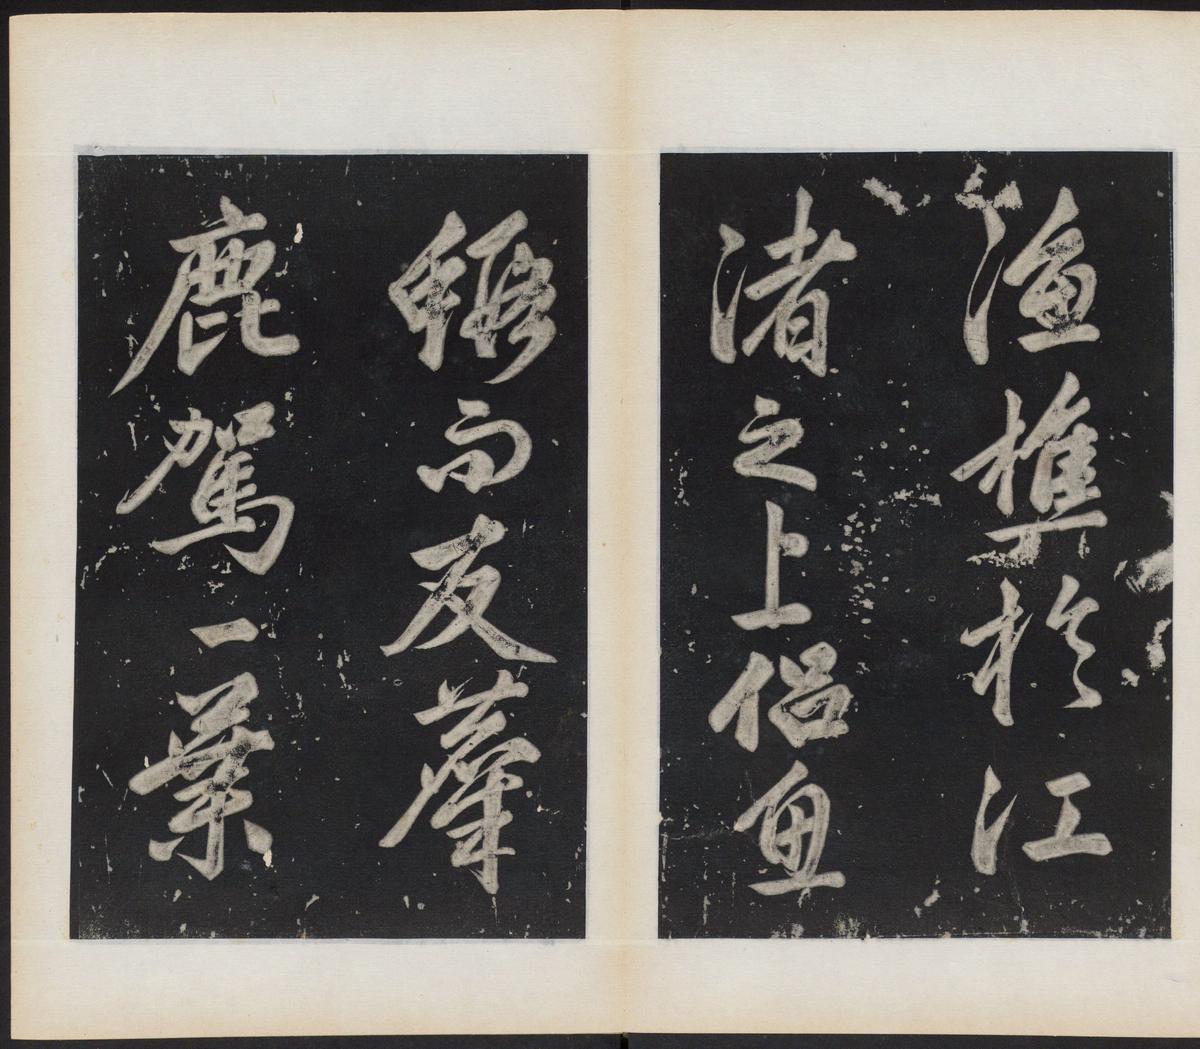 漁樵於江
渚之上侶魚
鰕而友麋
鹿駕一葉